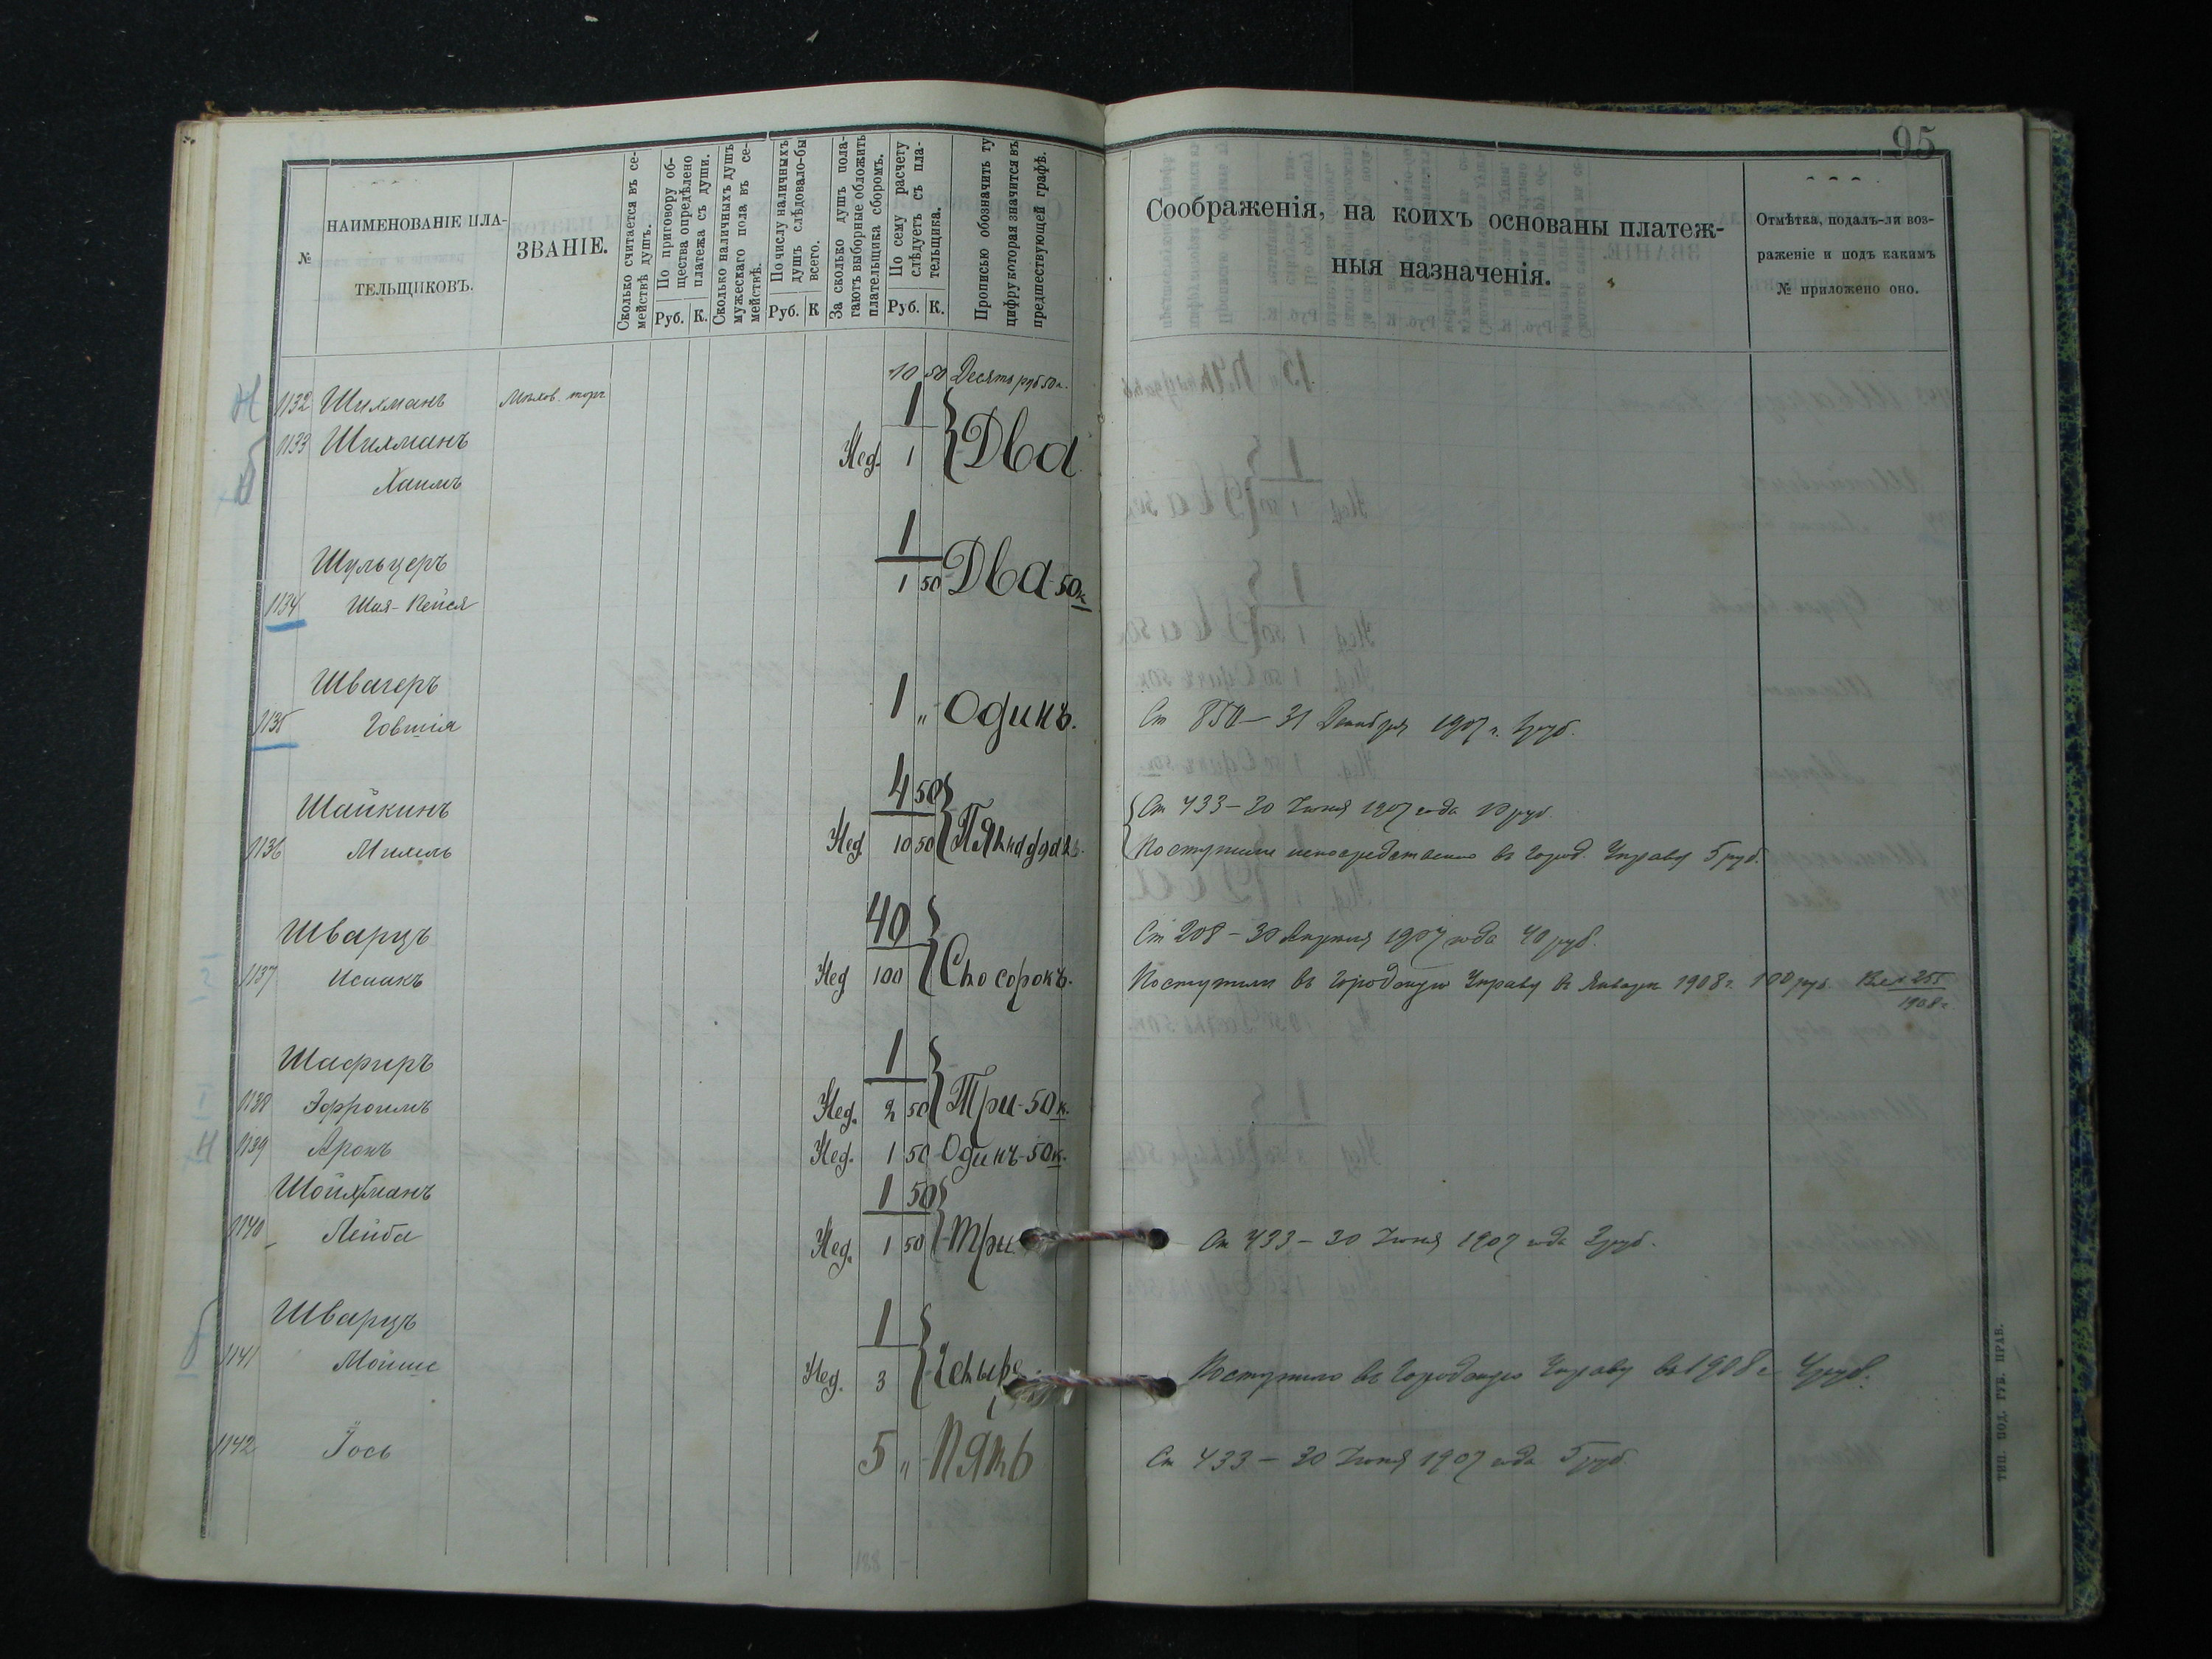 95
№
НАИМЕНОВАНІЕ ПЛА-
ТЕЛЬЩИКОВЪ.
ЗВАНІЕ.
Сколько считается въ се-
мействѣ душъ.
По приговору об-
щества опредѣлено
платежа съ души.
Руб. К.
Сколько наличныхъ душъ
мужескаго пола въ се-
мействѣ.
По числу наличныхъ
душъ слѣдовало-бы
всего.
Руб. К
За сколько душъ пола-
гаютъ выборные обложить
плательщика сборомъ.
По сему расчету
слѣдуетъ съ пла-
тельщика.
Руб. К.
Прописью обозначить ту
цифру которая значится въ
предшествующей графѣ.
Соображенія, на коихъ основаны платеж-
ныя назначенія.
Отмѣтка, подалъ-ли воз-
раженіе и подъ какимъ
№ приложено оно.
10 50 Десять руб 50 к.
1132 Шихманъ торг
1
1133 Шихманъ Нед. 1 Два
Хаимъ
1
Шульцеръ
1 50 Два 50к
1134 Шая-Пейся
Швагеръ
1 " Одинъ.
1135 Говшія Ст 850 — 31 Декабря 1907 г. 1 руб.
4 50
Шайкинъ Ст 433 — 30 Июня 1907 года 10 руб.
1136 Михель Нед 10 50 Пятнадцать. Поступили непосредственно въ Город. Управу 5 руб.
40
Шварцъ Ст 208 — 30 Апрѣля 1907 года 40 руб.
1137 Исаакъ Нед 100 Сто сорокъ. Поступили въ Городскую Управу въ Январѣ 1908 г. 100 руб. 255
1908 г.
1
Шафиръ
1138 Эфроимъ Нед. 2 50 Три-50к.
1139 Аронъ Нед. 1 50 Одинъ-50к.
1 50
1140 Лейба Нед. 1 50 Три Ст 433 — 30 Июня 1907 года 3 руб.
1
Шварцъ
1141 Мойше Нед. 3 Четыре Поступило въ Городскую Управу въ 1908 г 4 руб.
1142 Іось 5 " Пять Ст 433 — 30 Июня 1907 года 5 руб.
188
ТИП. ПОД. ГУБ. ПРАВ.